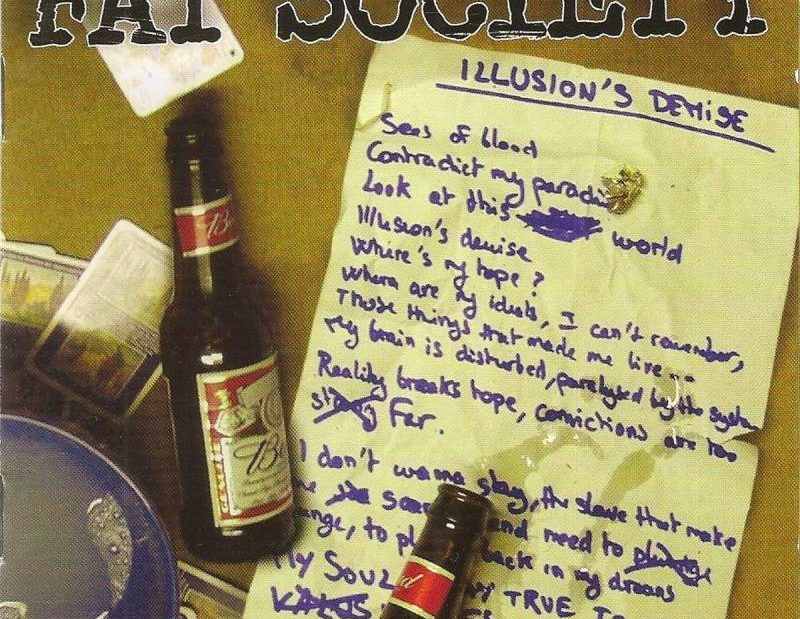 FAT SOCIETY
ILLUSION'S DEMISE
Seas of blood
Contradict my
Look at this world
Illusion's demise
Where's my hope?
Where are my ideals, I can't remember,
Those things that made me live...
My brain is disturbed, paralysed by the system
Reality breaks hope, convictions are too
Far.
I don't wanna stay, the slave that make
me and need to
to back in my dreams
My SOUL MY TRUE
Bud